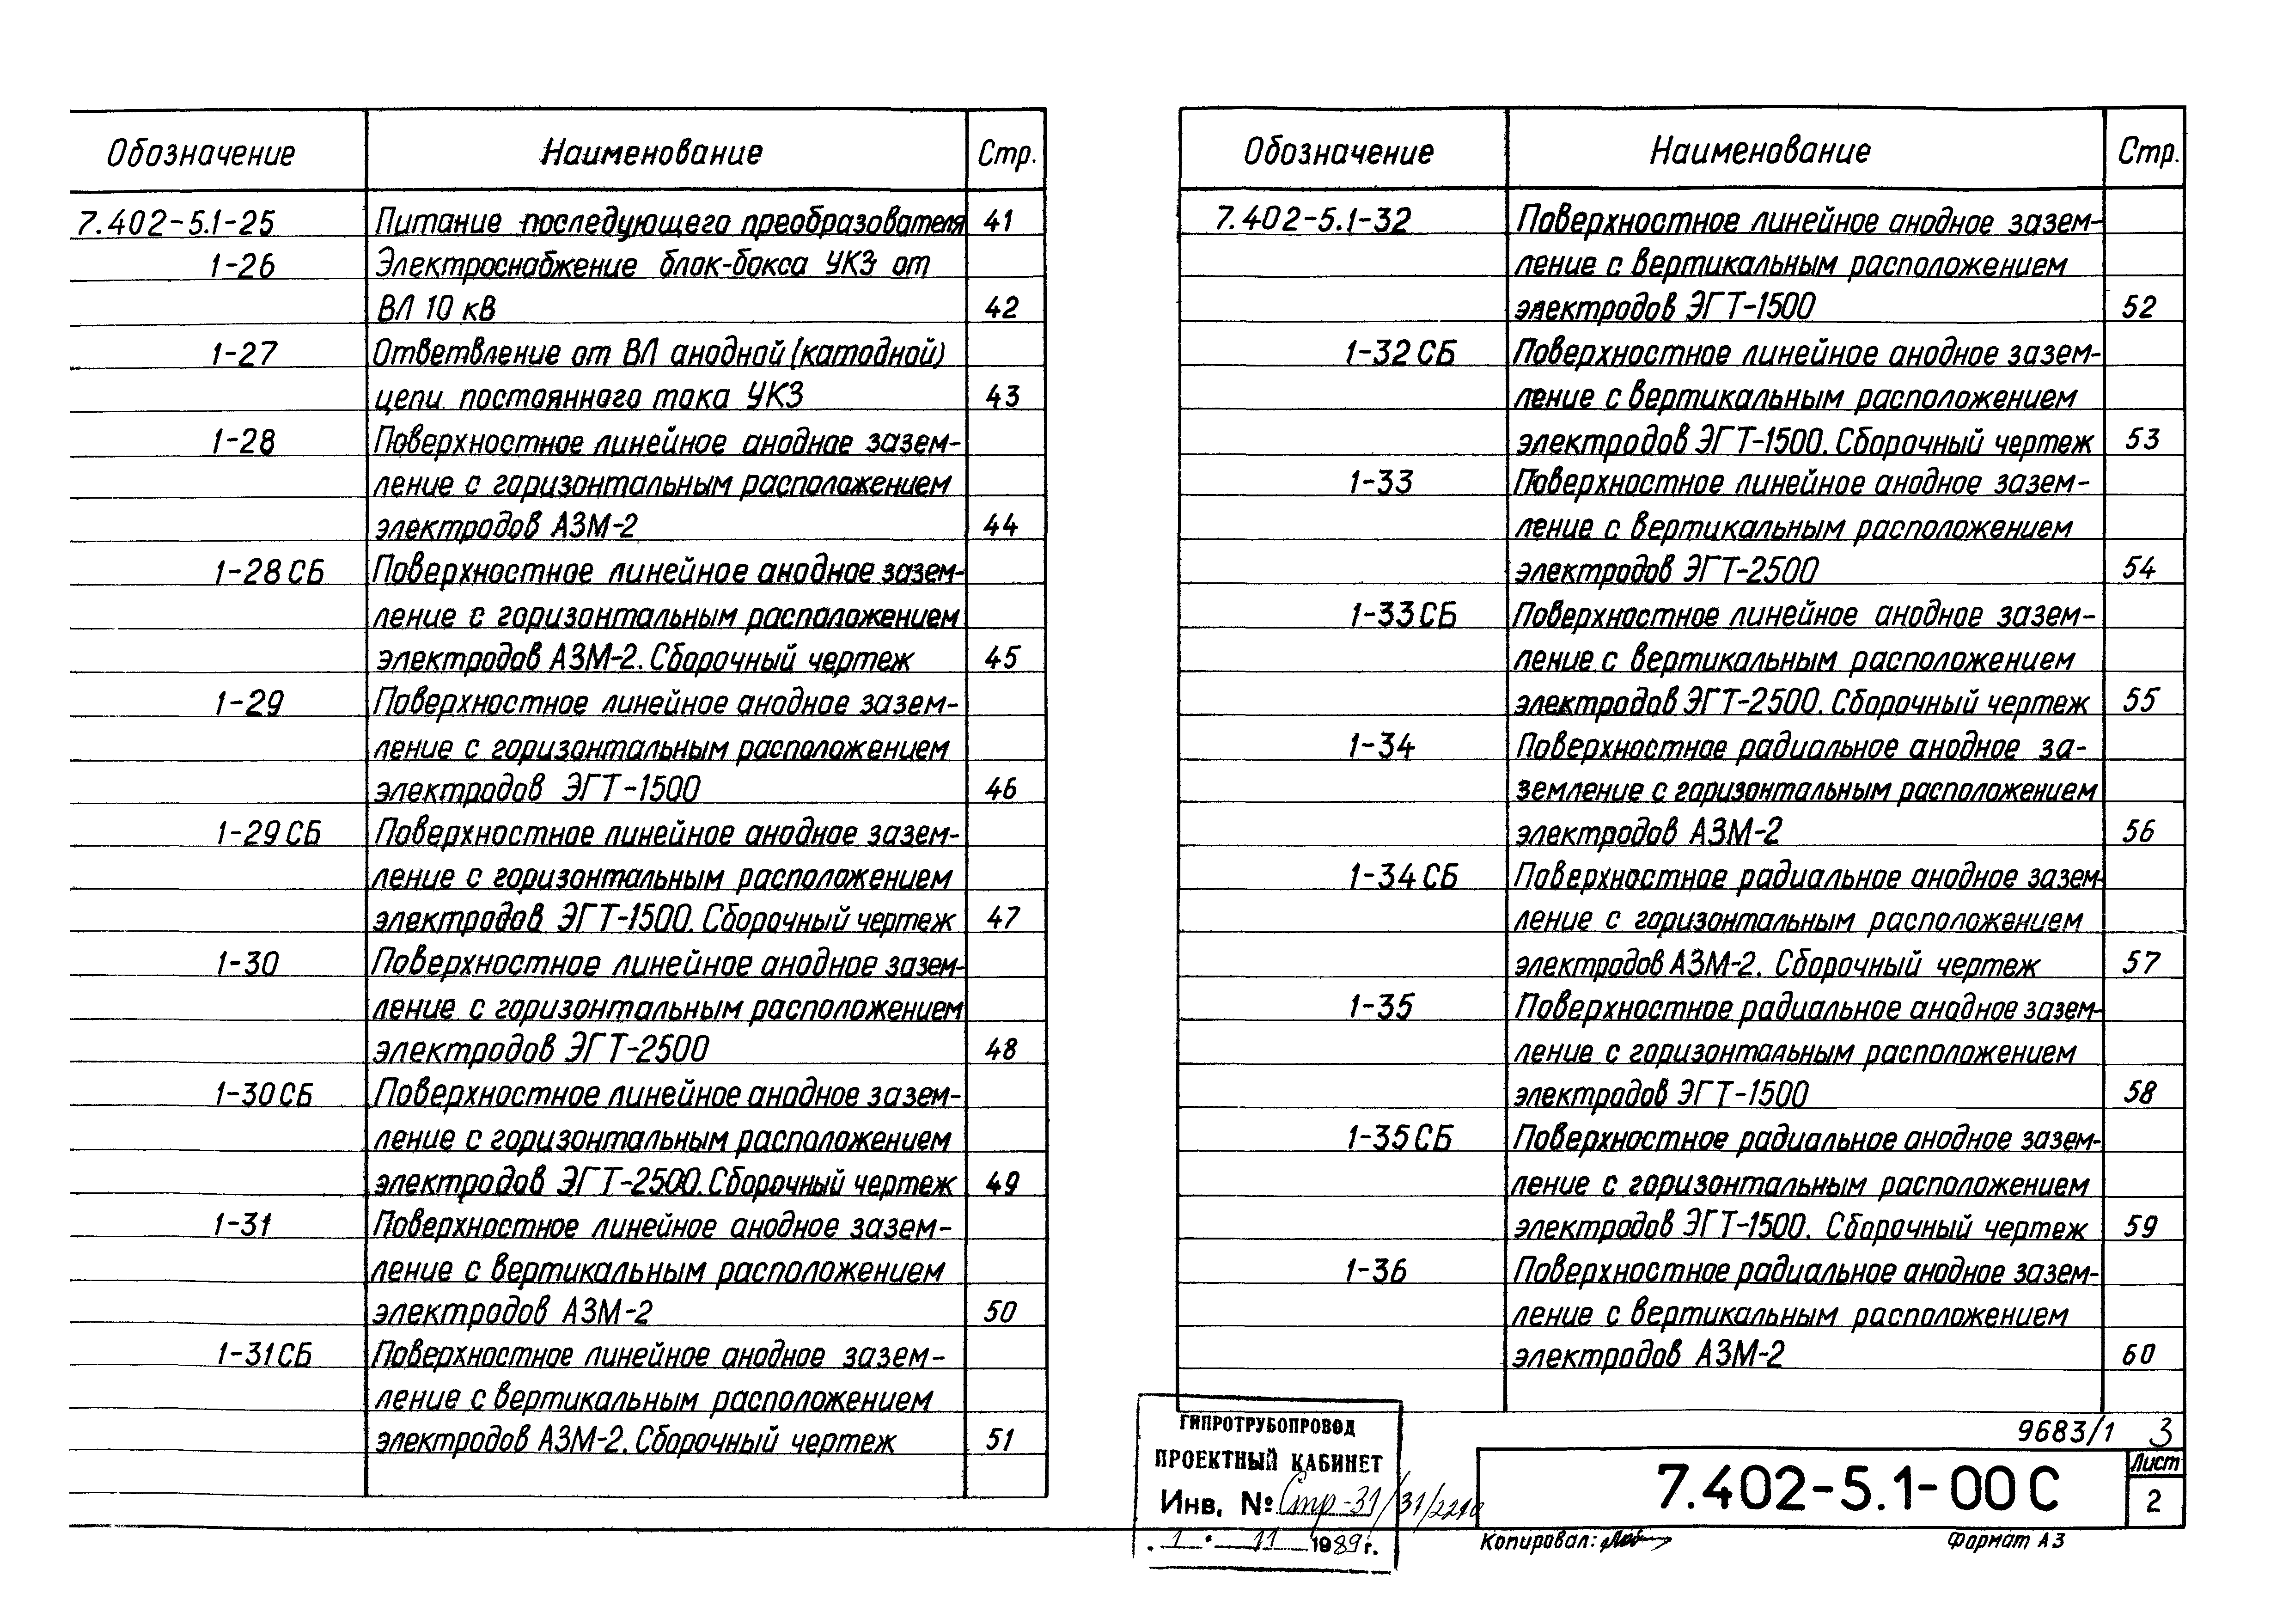 Обозначение Наименование Стр.
7.402-5.1-25 Питание последующего преобразователя 41
1-26 Электроснабжение блок-бокса УКЗ от
ВЛ 10 кВ 42
1-27 Ответвление от ВЛ анодной (катодной)
цепи постоянного тока УКЗ 43
1-28 Поверхностное линейное анодное зазем-
ление с горизонтальным расположением
электродов АЗМ-2 44
1-28 СБ Поверхностное линейное анодное зазем-
ление с горизонтальным расположением
электродов АЗМ-2. Сборочный чертеж 45
1-29 Поверхностное линейное анодное зазем-
ление с горизонтальным расположением
электродов ЭГТ-1500 46
1-29 СБ Поверхностное линейное анодное зазем-
ление с горизонтальным расположением
электродов ЭГТ-1500. Сборочный чертеж 47
1-30 Поверхностное линейное анодное зазем-
ление с горизонтальным расположением
электродов ЭГТ-2500 48
1-30 СБ Поверхностное линейное анодное зазем-
ление с горизонтальным расположением
электродов ЭГТ-2500. Сборочный чертеж 49
1-31 Поверхностное линейное анодное зазем-
ление с вертикальным расположением
электродов АЗМ-2 50
1-31 СБ Поверхностное линейное анодное зазем-
ление с вертикальным расположением
электродов АЗМ-2. Сборочный чертеж 51
Обозначение Наименование Стр.
7.402-5.1-32 Поверхностное линейное анодное зазем-
ление с вертикальным расположением
электродов ЭГТ-1500 52
1-32 СБ Поверхностное линейное анодное зазем-
ление с вертикальным расположением
электродов ЭГТ-1500. Сборочный чертеж 53
1-33 Поверхностное линейное анодное зазем-
ление с вертикальным расположением
электродов ЭГТ-2500 54
1-33 СБ Поверхностное линейное анодное зазем-
ление с вертикальным расположением
электродов ЭГТ-2500. Сборочный чертеж 55
1-34 Поверхностное радиальное анодное за-
земление с горизонтальным расположением
электродов АЗМ-2 56
1-34 СБ Поверхностное радиальное анодное зазем-
ление с горизонтальным расположением
электродов АЗМ-2. Сборочный чертеж 57
1-35 Поверхностное радиальное анодное зазем-
ление с горизонтальным расположением
электродов ЭГТ-1500 58
1-35 СБ Поверхностное радиальное анодное зазем-
ление с горизонтальным расположением
электродов ЭГТ-1500. Сборочный чертеж 59
1-36 Поверхностное радиальное анодное зазем-
ление с вертикальным расположением
электродов АЗМ-2 60
9683/1 3
7.402-5.1-00 С
Лист
2
ГИПРОТРУБОПРОВОД
ПРОЕКТНЫЙ КАБИНЕТ
Инв. № Стр-31/31/2210
1 11 1989 г.
Копировал: Формат А3